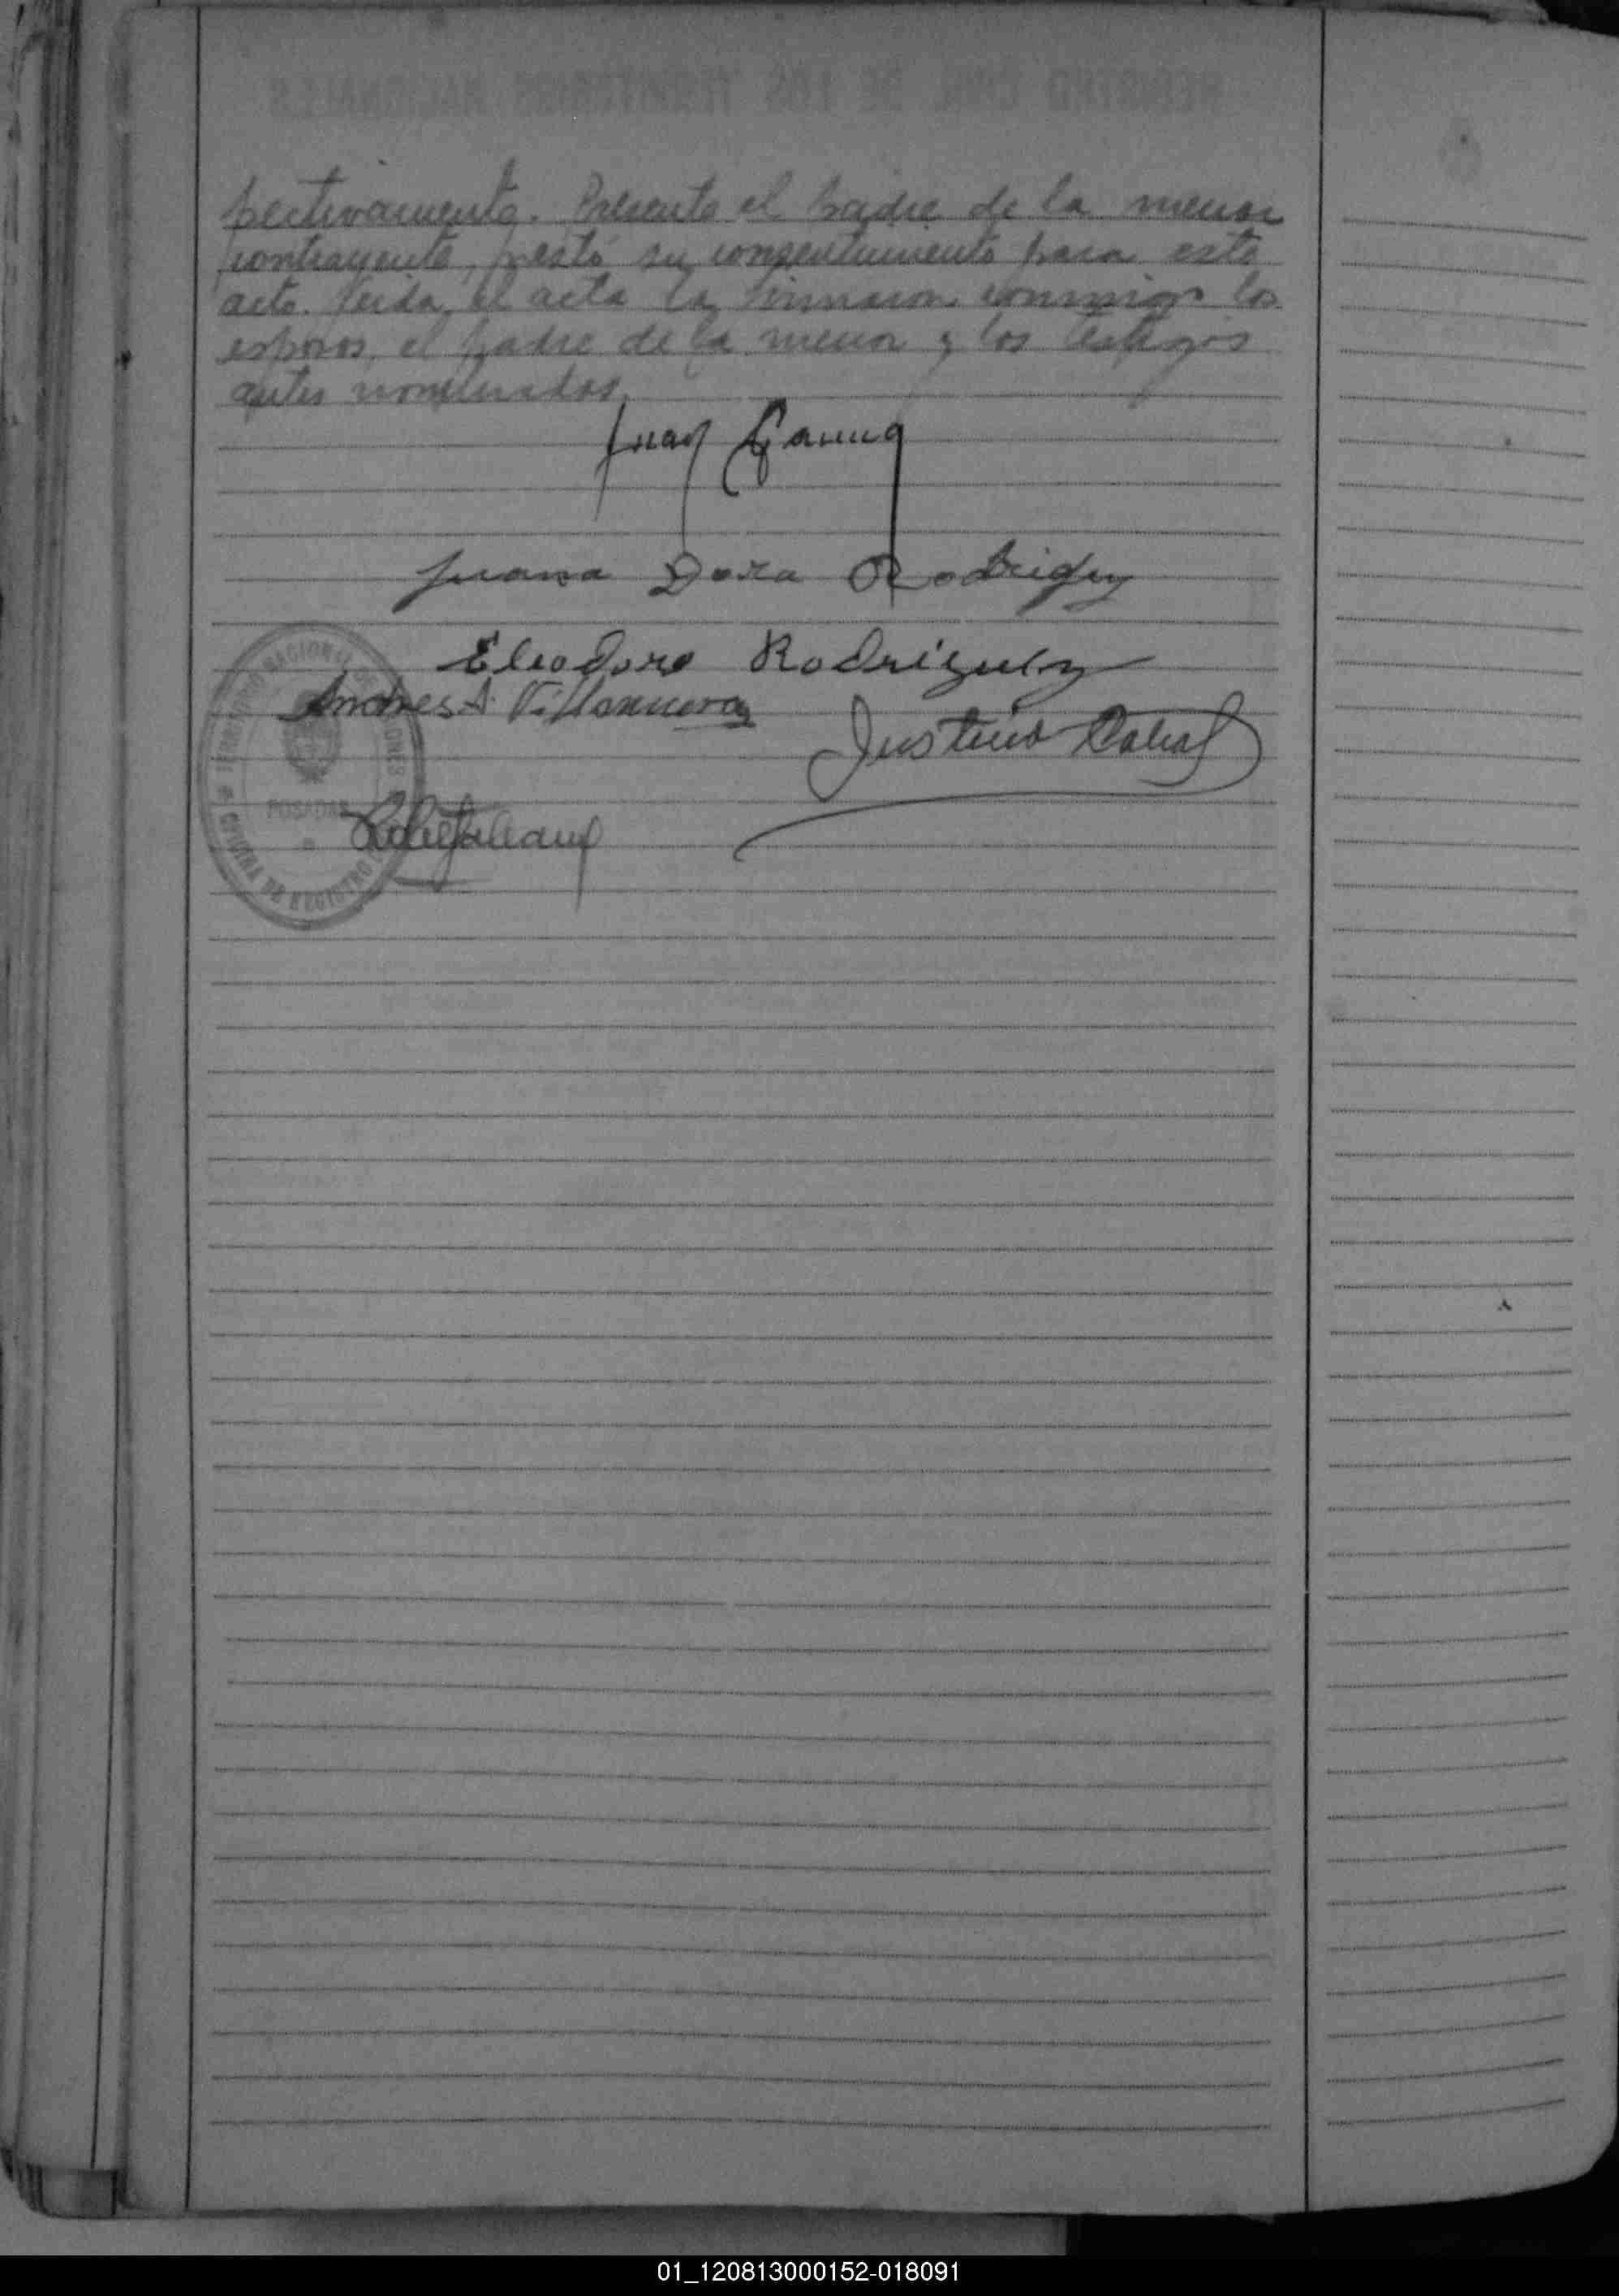 pectivamente. Presente el padre de la menor
contrayente, prestó su consentimiento para este
acto. Leida el acta la firmaron conmigo los
esposos, el padre de la menor y los testigos
antes nombrados.
Juan
Juana Dora Rodriguez
Eleodoro Rodriguez
Andres A Villanueva
Justino Cabral
TERRITORIO NACIONAL DE MISIONES
POSADAS
OFICINA DE REGISTRO
01_120813000152-018091